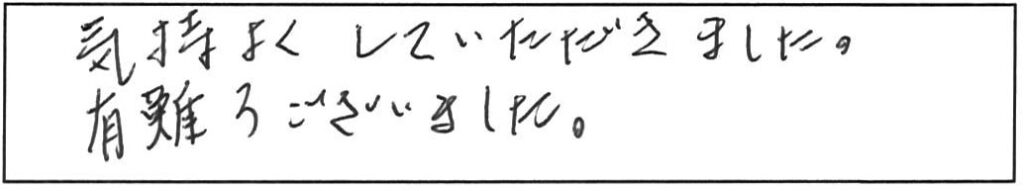 気持よく していただきました。
有難うございました。